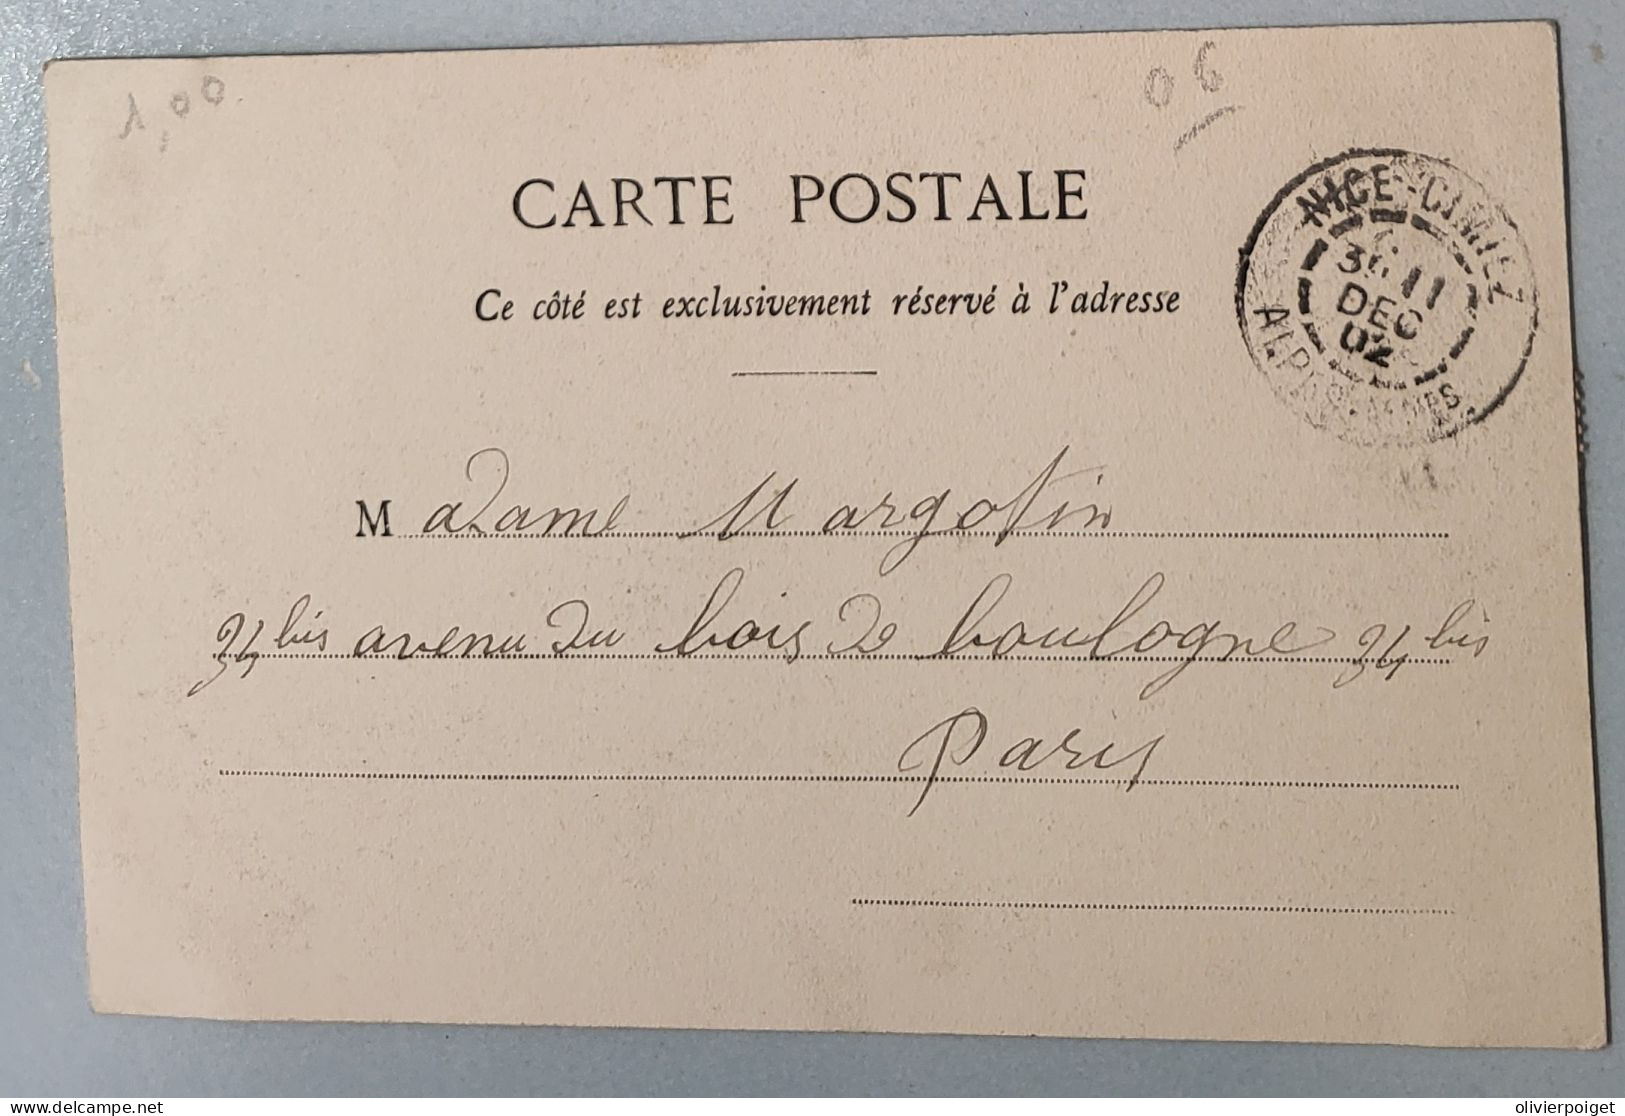 1,00
06
CARTE POSTALE
Ce côté est exclusivement réservé à l'adresse
NICE-CIMIEZ
11
DEC
02
Madame Margotin
34 bis avenu du bois de boulogne 34 bis
Paris
delcampe.net
olivierpoiget